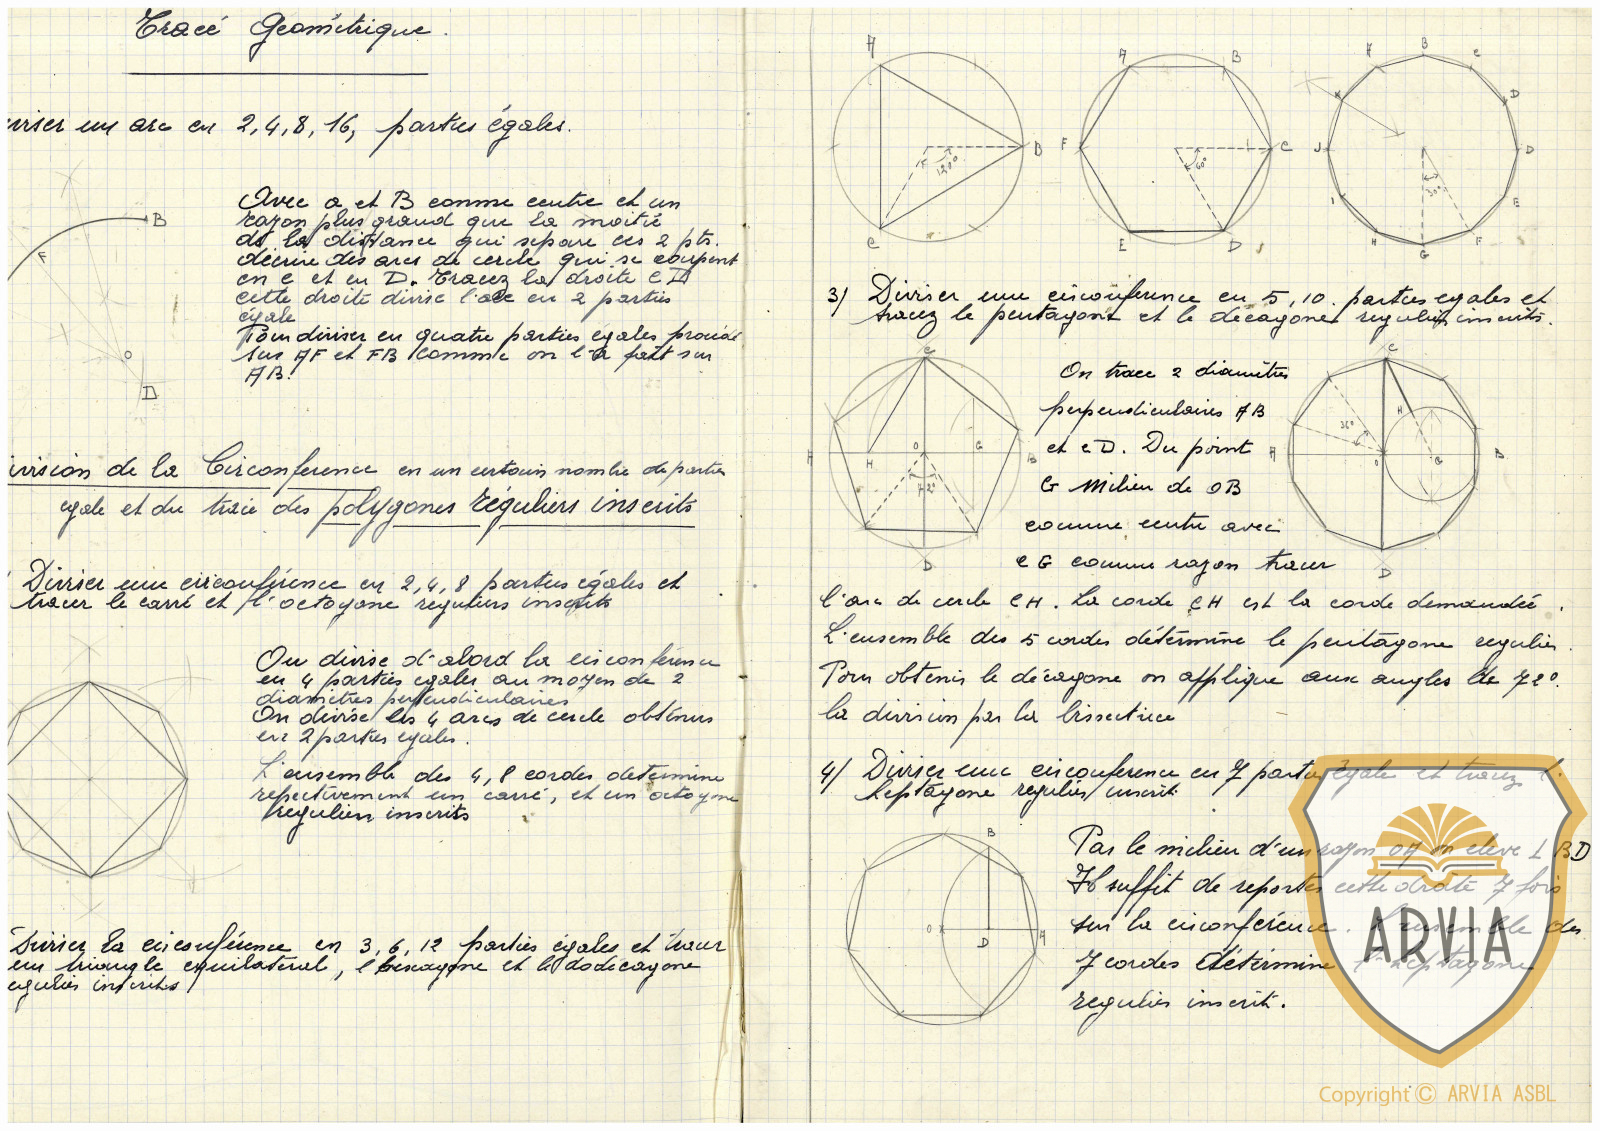 Tracé Géométrique.
iviser un arc en 2,4,8,16, parties égales.
Avec a et B comme centre et un
rayon plus grand que la moitié
de la distance qui separe ces 2 pts.
décrire des arcs de cercle qui se coupent
en C et en D. Tracez la droite CD
cette droite divise l'arc en 2 parties
égale
Pour diviser en quatre parties egales procéde
sur AF et FB comme on l'a fait sur
AB.
B
F
O
D
ivision de la Circonference en un certain nombre de parties
egale et du tracé des polygones réguliers inscrits
Diviser une circonférence en 2,4,8 parties égales et
tracer le carré et l'octogone reguliers inscrits
On divise d'abord la circonférence
en 4 parties egales au moyen de 2
diamètres perpendiculaires
On divise les 4 arcs de cercle obtenus
en 2 parties egales.
L'ensemble des 4,8 cordes determine
respectivement un carré, et un octogone
reguliers inscrits
Diviser la circonférence en 3,6,12 parties égales et tracer
un triangle equilateral, l'hexagone et le dodécagone
eguliers inscrits
A
D
C
120°
A
B
C
D
E
F
60°
A
B
C
D
D
E
F
G
H
I
J
K
30°
3) Diviser une circonférence en 5,10. parties egales et
tracez le pentagone et le décagone reguliers inscrits.
C
A
B
O
H
G
D
72°
On trace 2 diamètres
perpendiculaires AB
et CD. Du point
G milieu de OB
comme centre avec
CG comme rayon tracer
C
A
B
H
G
D
36°
l'arc de cercle CH. La corde CH est la corde demandée.
L'ensemble des 5 cordes détermine le pentagone regulier.
Pour obtenir le décagone on applique aux angles de 72°.
la division par la bissectrice
4) Diviser une circonference en 7 parties égale et tracez l'
heptagone regulier inscrit
B
O
D
A
Par le milieu d'un rayon OA on eleve ⊥ BD
Il suffit de reporter cette droite 7 fois
sur la circonférence. L'ensemble des
7 cordes détermine l'heptagone
regulier inscrit.
ARVIA
Copyright © ARVIA ASBL